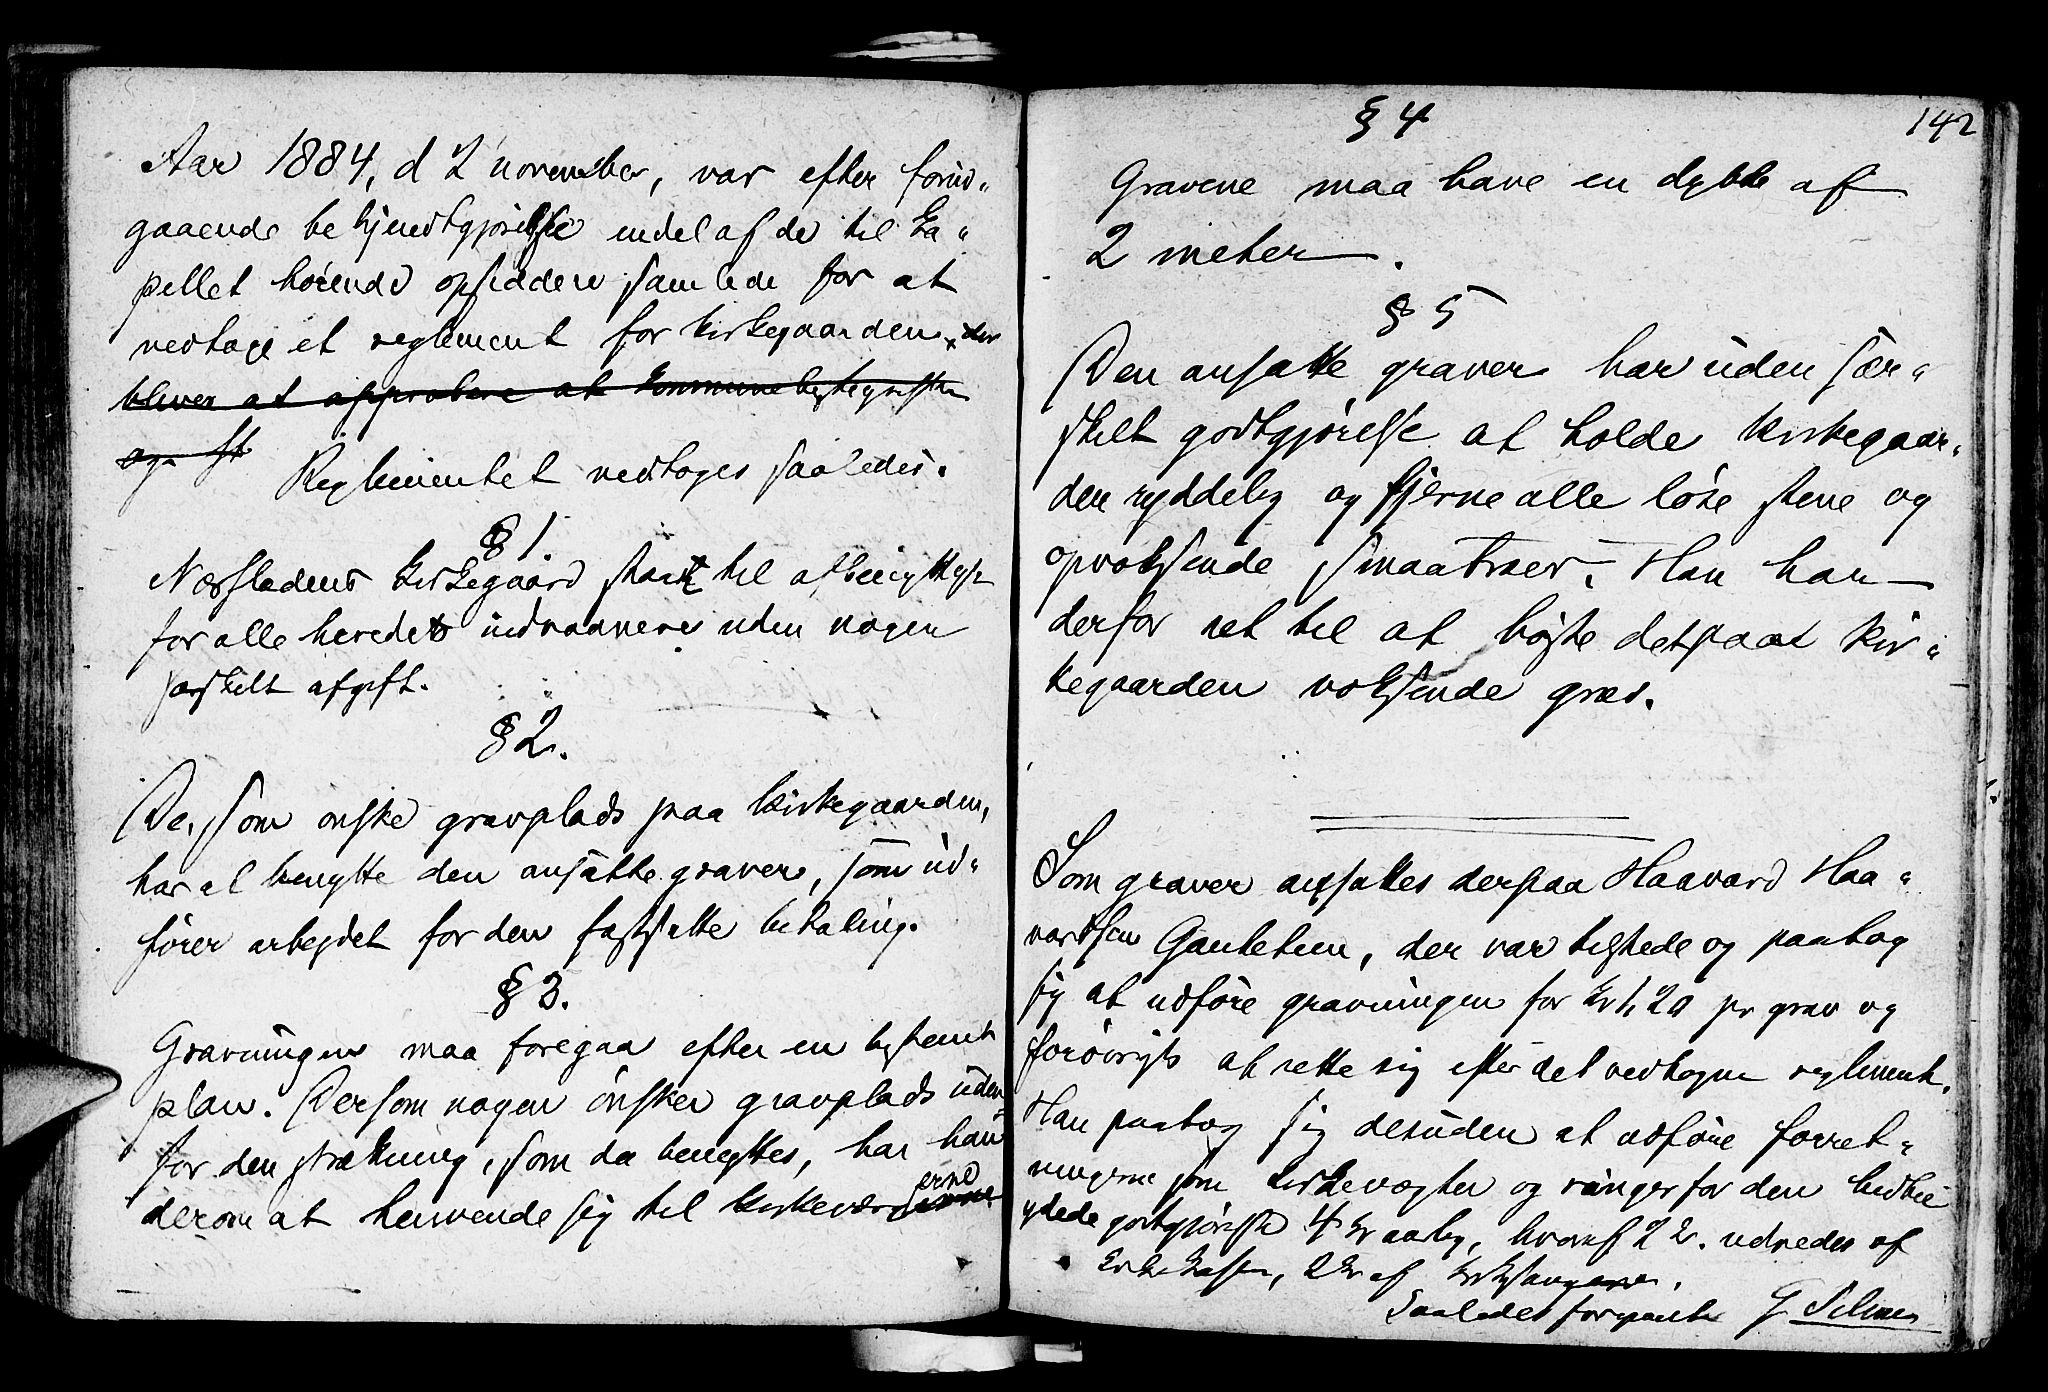 Aar 1884, d 2 november, var efter forud„
gaaende bekjendtgjørelse endel af de til Ka„
pellet hørende opsiddere samlede for at
vedtage et reglement for kirkegaarden, der
bliver at approbere at kommunebestyrelsen
og st
Reglementet vedtoges saaledes.
§ 1
Næsfladens kirkegaard staar til afbenyttelse
for alle heredets indvaanere uden nogen
særskilt afgift.
§ 2.
De, som ønske gravplads paa kirkegaarden,
har at benytte den ansatte graver, som ud„
fører arbejdet for den fastsatte betaling.
§ 3.
Gravningen maa foregaa efter en bestemt
plan. Dersom nogen ønsker gravplads uden„
for den strækning, som da benyttes, har han
erne
derom at henvende sig til kirkeværgerne
142
§ 4
Gravene maa have en dybde af
2 meter.
§ 5
Den ansatte graver har uden sær„
skilt godtgjørelse at holde kirkegaar„
den ryddelig og fjerne alle løse stene og
opvoksende smaatræer. Han har
derfor ret til at høste det paa kir„
kegaarden voksende græs.
Som graver ansattes derpaa Haavard Haa„
vardsen Gautetun, der var tilstede og paatog
sig at udføre gravningen for kr 1,20 pr grav og
forøvrigt at rette sig efter det vedtagne reglement.
Han paatog sig desuden at udføre forret„
ningerne som kirkevægter og ringer for den
ydede godtgjørelse 4 kr aarlig, hvoraf 2 kr. udredes af
Kirkekassen, 2 kr af kirkesangeren.
Saaledes forpagtet G